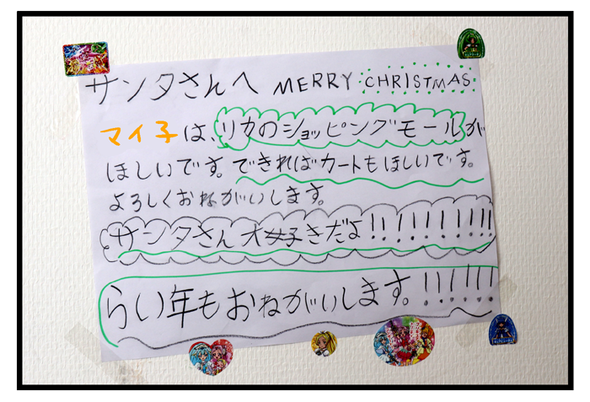 サンタさんへ MERRY CHRISTMAS
マイ子は、リカのショッピングモールが
ほしいです。できればカートもほしいです。
よろしくおねがいします。
サンタさん大好きだよ!!!!!!!!!!
らい年もおねがいします。!!!!!!